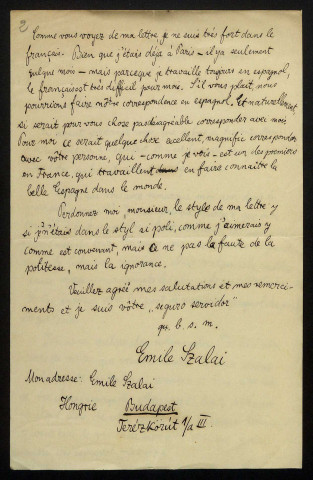 2
Comme vous voyez de ma lettre je ne suis très fort dans le
français. Bien que j'étais déjà à Paris – il y a seulement
quelque mois – mais parceque je travaille toujours en espagnol,
le français est très deffecil pour moi. S'il vous plait, nous
pourrions faire nôtre correspondence en espagnol. Et naturellement,
si serait pour vous chose pas disagréable corresponder avec moi.
Pour moi ce serait quelque chose excellent, magnific corresponder
avec vôtre personne, qui – comme je vois – est un des premiers
en France, qui travaillent en faire connaître la
belle Espagne dans le monde.
Perdonnez moi, monsieur, le style de ma lettre y
si je n'étais dans le styl si poli, comme j'aumerais y
comme est convenant, mais ce ne pas la faute de la
politesse, mais la ignorance.
Veuillez agreé mes salutations et mes remerci-
ments et je suis vôtre „seguro servidor"
q. b. s. m.
Emile Szalai
Mon adresse: Emile Szalai
Hongrie Budapest
Terézkörút 1/a III.